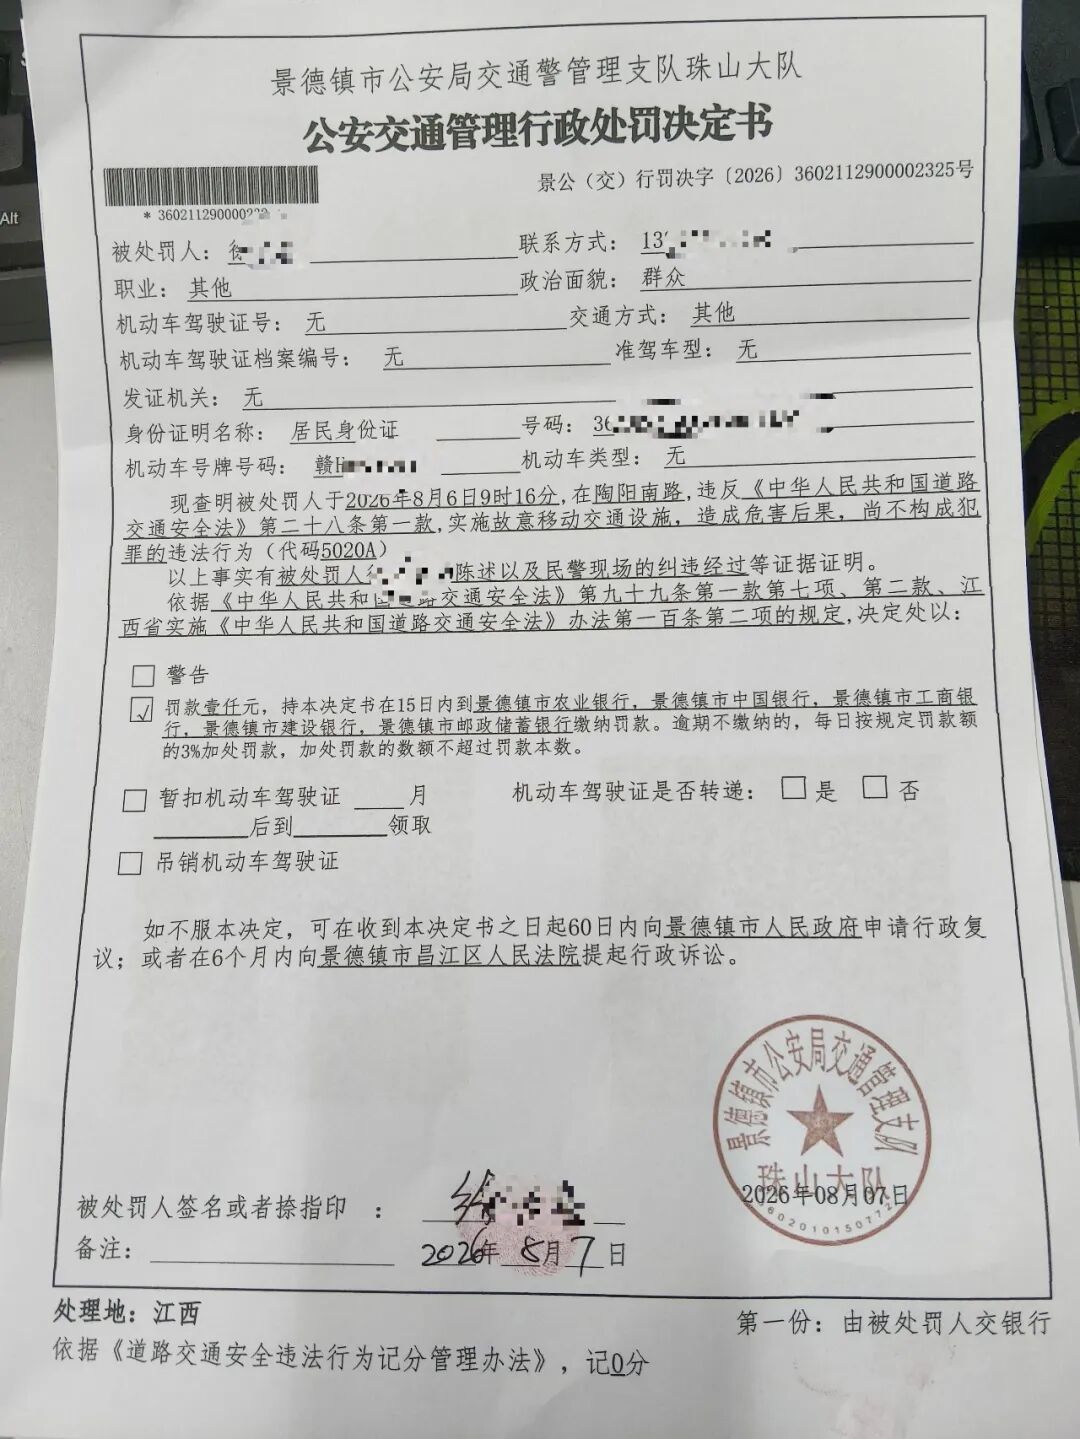 景德镇市公安局交通警管理支队珠山大队
公安交通管理行政处罚决定书
景公（交）行罚决字〔2026〕3602112900002325号
* 360211290000
被处罚人： 联系方式：13
职业：其他 政治面貌：群众
机动车驾驶证号：无 交通方式：其他
机动车驾驶证档案编号：无 准驾车型：无
发证机关：无
身份证明名称：居民身份证 号码：36
机动车号牌号码：赣H 机动车类型：无
现查明被处罚人于2026年8月6日9时16分,在陶阳南路,违反《中华人民共和国道路
交通安全法》第二十八条第一款,实施故意移动交通设施，造成危害后果，尚不构成犯
罪的违法行为（代码5020A）
以上事实有被处罚人 陈述以及民警现场的纠违经过等证据证明。
依据《中华人民共和国道路交通安全法》第九十九条第一款第七项、第二款、江
西省实施《中华人民共和国道路交通安全法》办法第一百条第二项的规定,决定处以：
□ 警告
☑ 罚款壹仟元，持本决定书在15日内到景德镇市农业银行，景德镇市中国银行，景德镇市工商银
行，景德镇市建设银行，景德镇市邮政储蓄银行缴纳罚款。逾期不缴纳的，每日按规定罚款额
的3%加处罚款，加处罚款的数额不超过罚款本数。
□ 暂扣机动车驾驶证 ____月 机动车驾驶证是否转递：□ 是 □ 否
________后到________领取
□ 吊销机动车驾驶证
如不服本决定，可在收到本决定书之日起60日内向景德镇市人民政府申请行政复
议；或者在6个月内向景德镇市昌江区人民法院提起行政诉讼。
景德镇市公安局交通管理支队
珠山大队
2026年08月07日
3602010150772
被处罚人签名或者捺指印 ： 徐
备注： 2026年 8月 7日
处理地：江西 第一份：由被处罚人交银行
依据《道路交通安全违法行为记分管理办法》，记0分